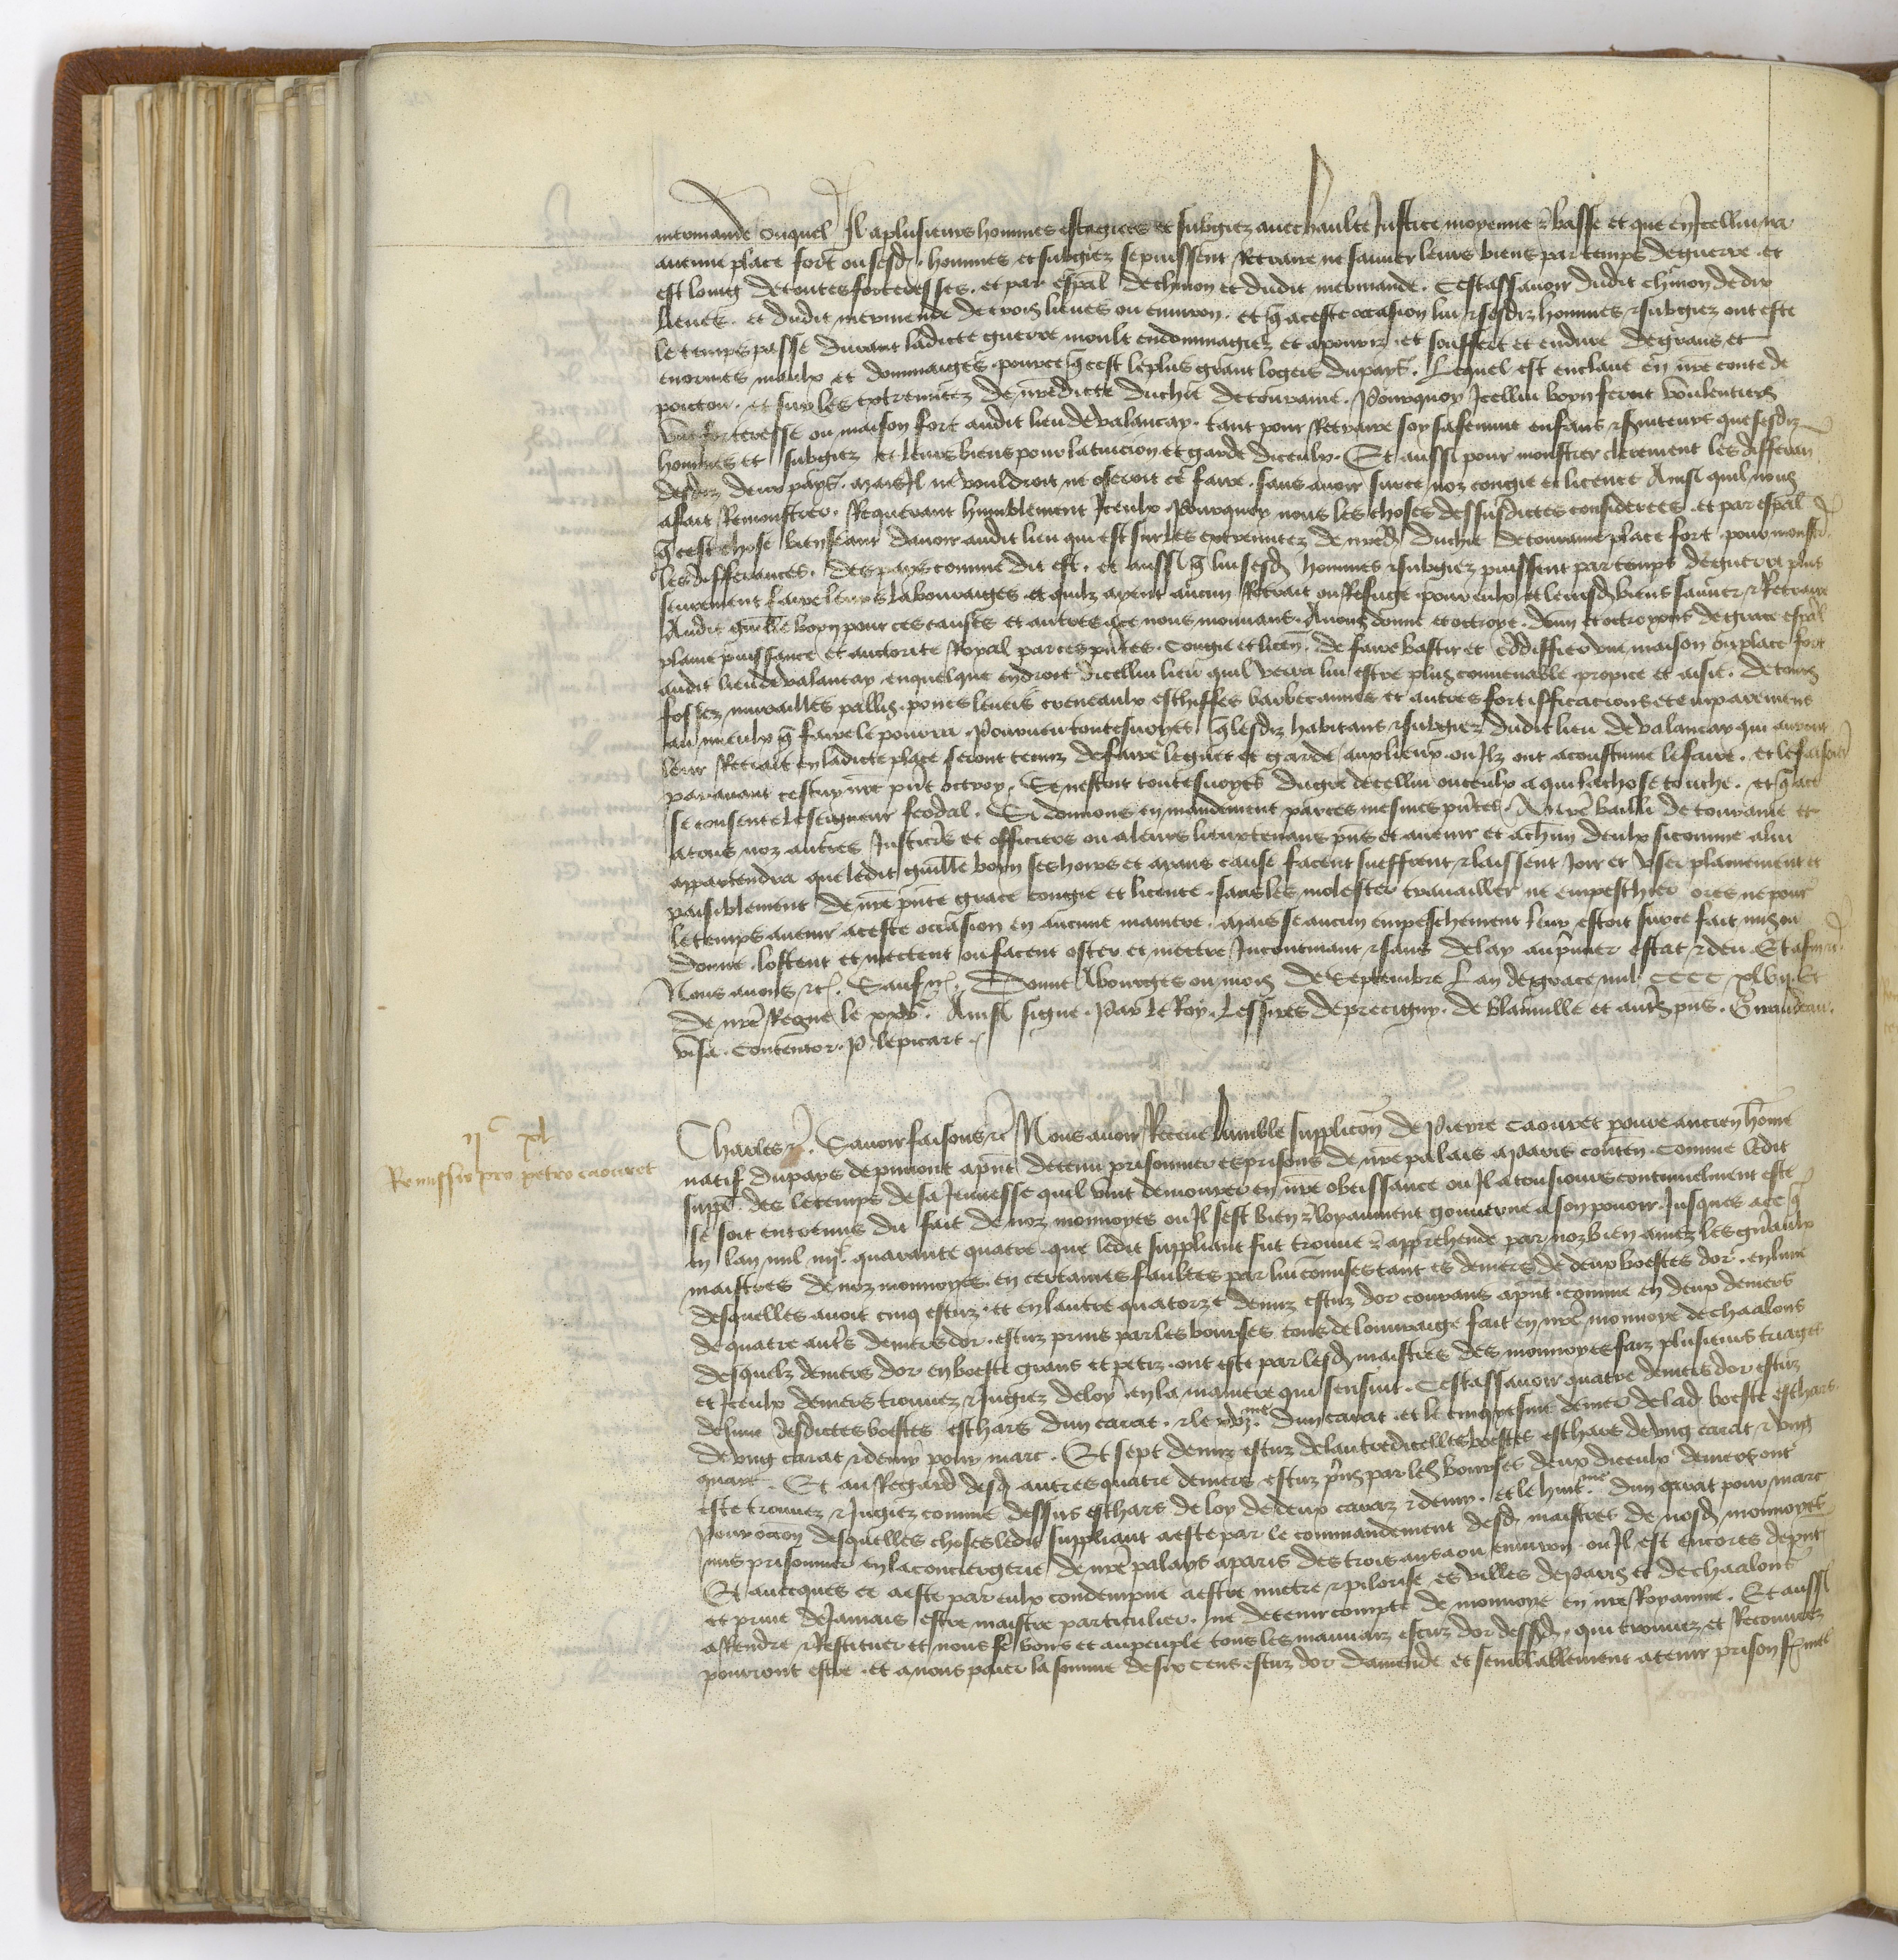 mermande ouquel Il a plusieurs hommes estagiers et subgiez avec haulte Justice moyenne & basse et que en Icellui na
aucune place fort ou sesd. hommes et subgiez se puissent Retraire ne sauver leurs biens par temps de guerre. et
est loing de toutes forteresses. et par espal de chinon et dudit mermande. Cestassavoir dudit chinon de dix
lieues. et dudit mermende de trois lieues ou environ. et q a ceste occasion lui & sesdiz hommes & subgiez ont este
le temps passe durant ladicte guerre moult endommagiez et apouriz. et souffert et endure de grans et
enormes maulx et dommaiges. pource q cest le plus grant logeis du pays. Lequel est enclave en nre conte de
poictou. et sur les extremitez de nredicte duchie de touraine. Pourquoy Icellui boyn feroit voulentiers
une forteresse ou maison fort audit lieu de valancay. tant pour Retraire soy sa femme enfans & que sesdiz
hommes et subgiez et leurs biens pour la tuicion et garde diceulx. Et aussi pour monstrer clerement les differan
desdiz deux pays. mais Il ne vouldroit ne oseroit ce faire. sans avoir surce noz congie et licence Ainsi quil nous
a fait Remonstrer. Requerant humblement Iceulx. Pourquoy nous les choses dessusdictes considerees. et par espal
q cest chose bien seant davoir audit lieu qui est sur les extremitez de nred. duchie de touraine place fort. pour monstr.
les differances. des pays comme dit est. et aussi q lui sesd. hommes & subgiez puissent par temps de guerre plus
seurement faire leurs labouraiges. et quilz ayent aucun Retrait ou Refuge. pour eulx et leursd. biens sauver & Retraire
Audit guille boyn pour ces causes et autres a ce nous mouvans. Avons donne et octroye. donn et octroyons de grace espal
plaine puissance et auctorite Royal par ces pntes. Congie et licen. de faire bastir et eddiffier une maison ou place fort
audit lieu de valancay. en quelque endroit dicellui lieu quil verra lui estre plus convenable. propice et aisie. de tours
fossez, murailles palliz. pons leveis creneaulx eschiffes barbecannes et autres fortifficacions et emparemens
au mieulx q faire le pourra. Pourveu toutesvoyes q lesdiz habitans & subgiez dudit lieu de valancay qui auront
leur Retrait en ladicte place seront tenuz de faire le guet et garde aux lieux. ou Ilz ont acoustume le faire. et le faisoient
paravant cestuy nre pnt octroy. Et nestoit toutesvoyes du gre dicellui ou ceulx a qui la chose touche. et q a ce
se consente le seigneur feodal. Si donnons en mandement par ces mesmes pntes. A nre bailli de touraine et
a tous noz autres Justiciers et officiers ou a leurs lieuxtenans pns et avenir et achun deulx sicomme a lui
appartendra que ledit guille boyn ses hoirs et ayans cause facent sueffrent & laissent Joir et user plainement et
paisiblement de nre pnte grace congie et licence. sans les molester travailler ne empeschier ores ne pour
le temps avenir a ceste occasion en aucune maniere. mais se aucun empeschement leur estoit surce fait mis ou
donne. lostent et mectent ou facent oster et mectre Incontinant & sans delay au premier estat & deu. Et afin &c.
Nous avons &c. Sauf &c. Donne A bourges ou mois de Septembre Lan de grace mil CCCC xlvij. Et
de nre Regne le xxve. Ainsi signe. Par le Roy. Les sires de precigny. de blainville et autres pns. Giraudeau.
visa. Contentor. P. lepicart.
ijc xl
Remissio pro petro caouret
Charles &c. Savoir faisons &c Nous avoir Receue lumble supplicon de Pierre Caouret povre ancien home
natif du pays de pimont apnt detenu prisonnier es prisons de nre palais a paris conten. Comme ledit
supp. des le temps de sa Jeunesse quil vint demourer en nre obeissance ou Il a tousiours continuelment este
se soit entremis du fait de noz monnoyes ou Il sest bien & loyaument gouverne a son povoir. Jusques ace q
en lan mil iiijc. quarante quatre. que ledit suppliant fut trouve & apprehende par noz bien amez les gnaulx
maistres de noz monnoyes en certaines faultes par lui commises tant es deniers de deux boestes dor. en lune
desquelles avoit cinq escuz. et en lautre quatorze deniers escuz dor courans apnt. comme en deux deniers
de quatre autres deniers dor. escuz prins par les bourses tous de louvraige fait en nre monnoye de chaalons
desquelz deniers dor en boeste grans et petiz. ont este par lesd. maistres des monnoyes faiz plusieurs triages
et Iceulx deniers trouvez & Jugiez de loy en la maniere qui sensuit. Cestassavoir quatre deniers dor escuz
de lune desdictes boestes eschars dun carat. & le dun carat. et le cinqyesme denier de lad. boeste eschars
de ung carat & demy pour marc. Et sept deniers escuz de lautre dicelles boestes eschars de ung carat & ung
quart. Et au Regard desd. autres quatre deniers escuz prins par les bourses deux diceulx deniers ont
este trouvez & Jugiez comme dessus eschars de loy de deux caraz & demy. et le huitme. dun carat pour marc
Pour occon desquelles choses ledit suppliant a este par le commandement desd. maistres de nosd. monnoyes
mis prisonnier en la conciergerie de nre palays a paris des trois ans a ou environ. ou Il est encores de pnt.
Et avecques ce a este par eulx condempne a estre mictre & pilorise es villes de paris et de chaalons
et prive de Jamais estre maistre particulier. ne de tenir compte de monnoye en nre Royaume. Et aussi
a Rendre & Restituer et nous et au peuple tous les mauvaiz escuz dor dessusd. qui trouvez et Recouvrez
pourront estre. et a nous paier la somme de six cens escuz dor damende et semblablement a tenir prison